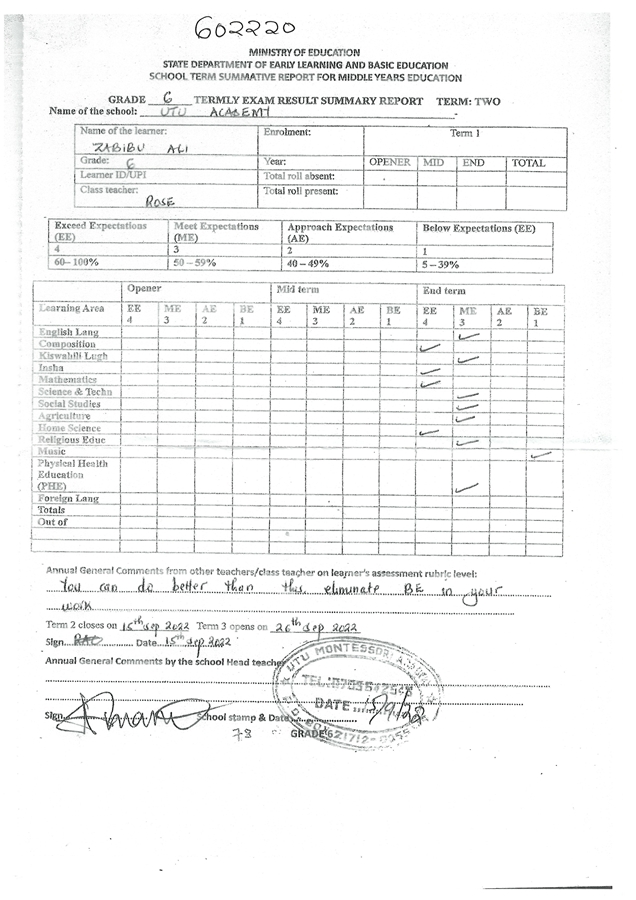 602220
MINISTRY OF EDUCATION
STATE DEPARTMENT OF EARLY LEARNING AND BASIC EDUCATION
SCHOOL TERM SUMMATIVE REPORT FOR MIDDLE YEARS EDUCATION
GRADE 6 TERMLY EXAM RESULT SUMMARY REPORT TERM: TWO
Name of the school: UTU ACADEMY
Name of the learner: Enrolment: Term 1
ZABIBU ALI
Grade: 6 Year: OPENER MID END TOTAL
Learner ID/UPI Total roll absent:
Class teacher: Total roll present:
ROSE
Exceed Expectations (EE) Meet Expectations (ME) Approach Expectations (AE) Below Expectations (EE)
4 3 2 1
60–100% 50–59% 40–49% 5–39%
Opener Mid term End term
Learning Area EE ME AE BE EE ME AE BE EE ME AE BE
4 3 2 1 4 3 2 1 4 3 2 1
English Lang ✓
Composition ✓
Kiswahili Lugh ✓
Insha ✓
Mathematics ✓
Science & Techn ✓
Social Studies ✓
Agriculture ✓
Home Science ✓
Religious Educ ✓
Music ✓
Physical Health
Education
(PHE) ✓
Foreign Lang
Totals
Out of
Annual General Comments from other teachers/class teacher on learner's assessment rubric level:
You can do better than this eliminate BE in your
work
Term 2 closes on 15th sep 2022 Term 3 opens on 26th sep 2022
Sign Date 15th sep 2022
Annual General Comments by the school Head teacher
UTU MONTESSORI
DATE
Sign School stamp & Date
78 GRADE 6